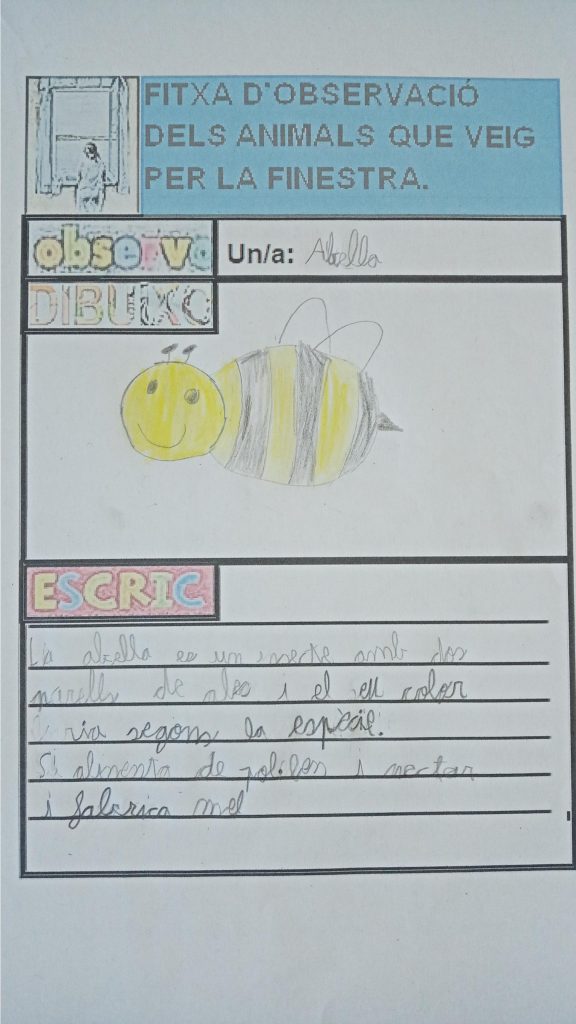 FITXA D'OBSERVACIÓ
DELS ANIMALS QUE VEIG
PER LA FINESTRA.
observo
Un/a: Abella
DIBUIXO
ESCRIC
La abella es un insecte amb dos
parells de ales i el seu color
varia segons la espècie.
S'alimenta de pol·len i nectar
i fabrica mel